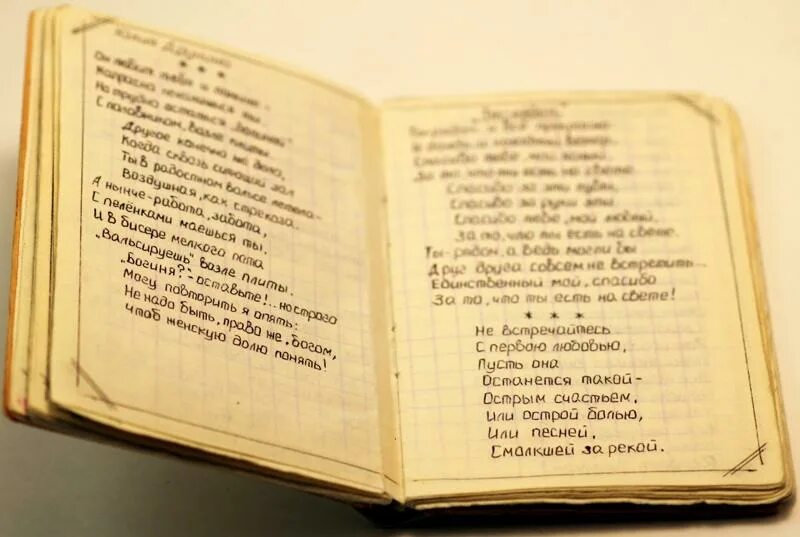 Юлия Друнина
* * *
Он любит тебя и
Напрасно ты.
Но трудно остаться "богиней"
С половником, возле плиты.
Другое конечно же дело,
Когда сквозь сияющий зал
Ты в радостном вальсе летела-
Воздушная, как стрекоза.
А нынче-работа, забота,
С пелёнками маешься ты.
И в бисере мелкого пота
"Вальсируешь" возле плиты.
"Богиня?"-оставьте!.. но строго
Могу повторить я опять:
Не надо быть, право же, богом,
чтоб женскую долю понять!
Ты рядом, и всё прекрасно:
И дождь, и холодный ветер.
Спасибо тебе, мой ясный,
За то, что ты есть на свете.
Спасибо за эти губы,
Спасибо за руки эти.
Спасибо тебе, мой любимый,
За то, что ты есть на свете.
Ты-рядом, а ведь могли бы
Друг друга совсем не встретить..
Единственный мой, спасибо
За то, что ты есть на свете!
* * *
Не встречайтесь
С первою любовью,
Пусть она
Останется такой-
Острым счастьем,
Или острой болью,
Или песней,
Смолкшей за рекой.